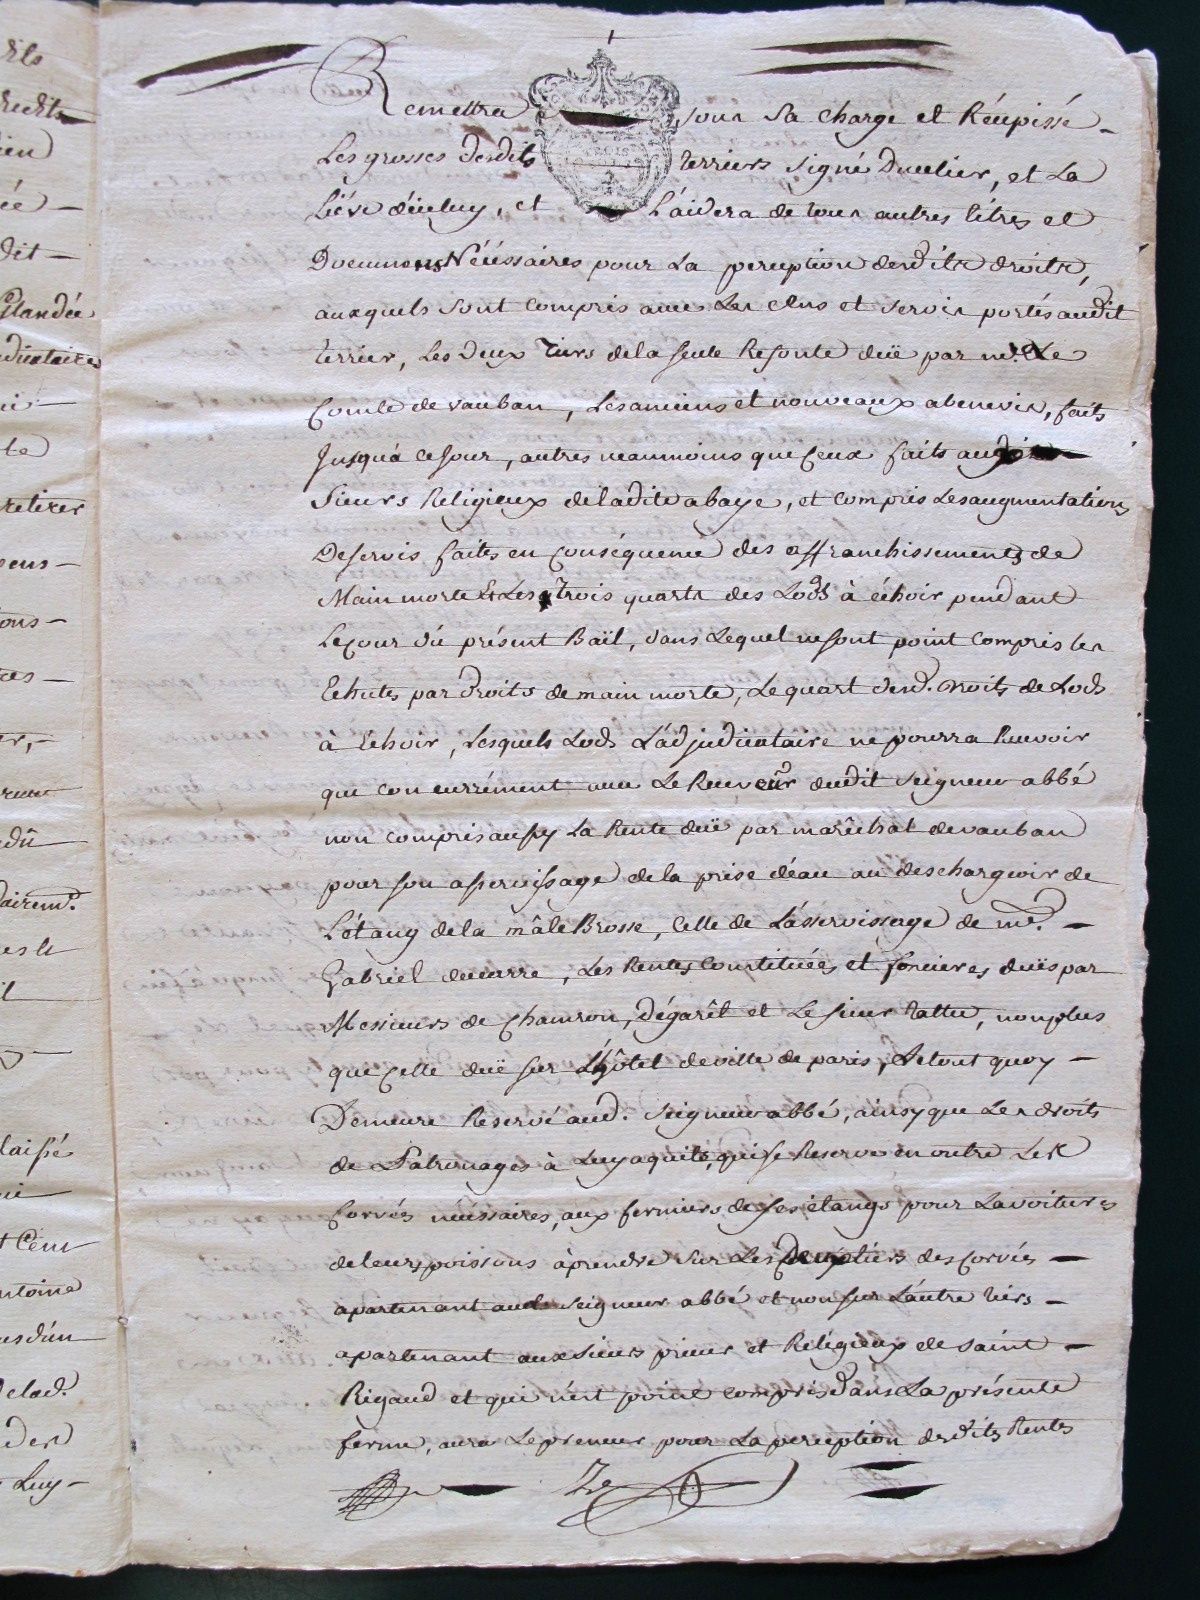 Remettra sous Sa charge et Réçépissé
Les grosses desdits terriers signé Ducelier, et La
Liéve d'icéluy, et L'aidera de tous autres titres et
Documens Nécéssaires pour La perception desdits droits,
auxquels sont compris avec Les Cens et servis portés audit
terrier, Les Deux Tiers de la seule Refonte deüe par mr. Le
Comte de vauban, Les anciens et nouveaux abenevis, faits
Jusqu'à ce Jour, autres neanmoins que Ceux faits au
Sieurs Religieux de ladite abaye, et compris Les augmentations
De servis faites en Conséquence des affranchissements de
Main morte Et Les trois quarts des Lods à échoir pendant
Le Cour dû présent Bail, dans Lequel ne sont point Compris les
Echutes par droits de main morte, Le quart desd. droits de Lods
à Echoir, Lesquels Lods L'adjudicataire ne pourra Recevoir
que concurrément avec Le Receveur dudit Seigneur abbé
non compris aussy La Rente deüe par marêchal de vauban
pour son asservissage de la prise d'eau au deschargeoir de
L'étang de la mâle Brosse, Celle de L'asservissage de me.
Gabriel ducarre, Les Rentes Constituées et foncieres duës par
Messieurs de Chamron, Dégarêt et Le sieur tattu, non plus
que Celle deüe sur L'hôtel de ville de paris, Le tout quoy
Demeure Reservé aud. Seigneur abbé, ainsy que Les droits
de Patronages à Luy aquits, qui se Reserve en outre Les
Corvées nécéssaires, aux fermiers de ses étangs pour La voiture
de leurs poissons à prendre sur Les Deux tiers des Corvées
apartenant aud. Seigneur abbé et non sur L'autre tiers
apartenant aux sieurs prieur et Religieux de Saint
Rigaud et qui n'est point compris dans La présente
ferme, aura Le preneur pour La perception desdits Rentes